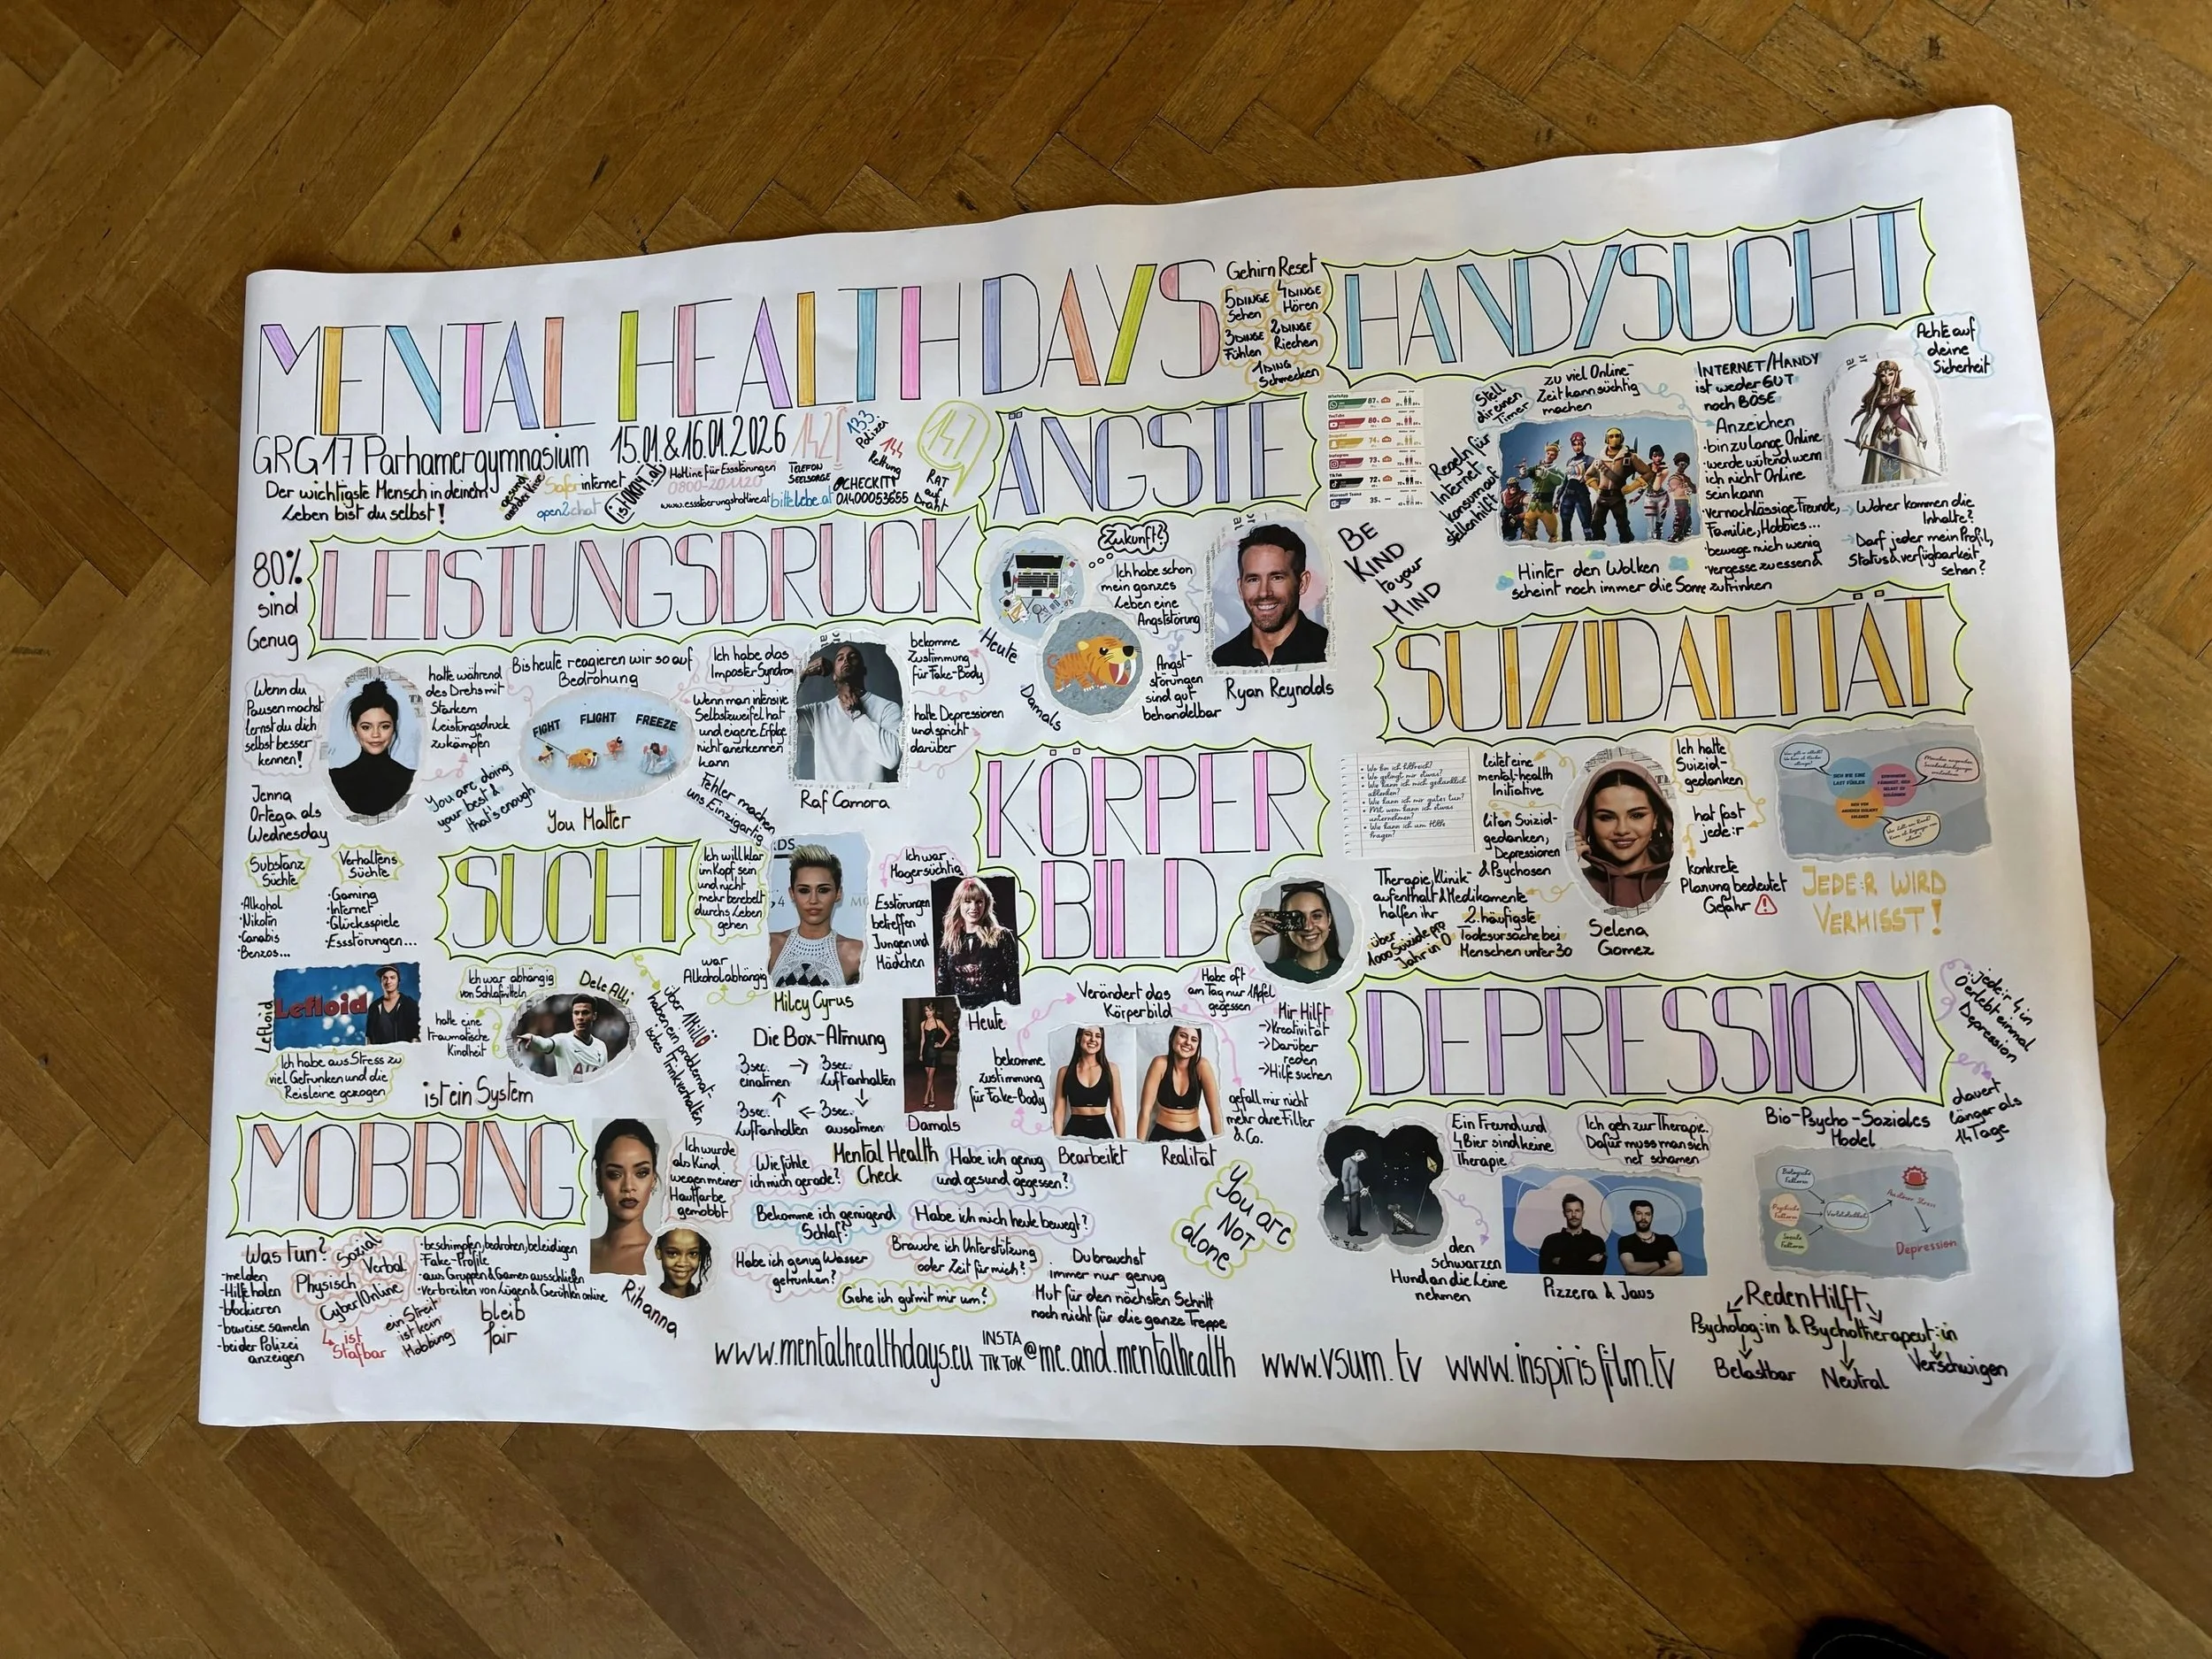 MENTAL HEALTH DAYS
GRG17 Parhamergymnasium 15.01.&16.01.2026
Der wichtigste Mensch in deinem
Leben bist du selbst!
gesund
aus der Krise
Saferinternet
open2chat
istOKAY.at
Hotline für Essstörungen
0800-201120
www.essstoerungshotline.at
142
TELEFON
SEELSORGE
bittelebe.at
133
Polizei
144
Rettung
@CHECKIT!
01400053655
147
RAT
auf
Draht
Gehirn Reset
5 DINGE
Sehen
4 DINGE
Hören
3 DINGE
Fühlen
2 DINGE
Riechen
1 DING
Schmecken
HANDYSUCHT
Achte auf
deine
Sicherheit
Stell
dir einen
Timer
zu viel Online-
Zeit kann süchtig
machen
Regeln für
Internet
konsum auf
stellen hilft
INTERNET/HANDY
ist weder GUT
noch BÖSE
Anzeichen
·bin zu lange Online
·werde wütend wenn
ich nicht Online
sein kann
·vernachlässige Freunde,
Familie, Hobbies...
·bewege mich wenig
·vergesse zu essen &
zu trinken
Woher kommen die
Inhalte?
Darf jeder mein Profil,
Status & verfügbarkeit
sehen?
Hinter den Wolken
scheint noch immer die Sonne
WhatsApp
87%
YouTube
80%
Snapchat
74%
Instagram
73%
TikTok
72%
Microsoft Teams
35%
BE
KIND
to your
MIND
ÄNGSTE
Zukunft?
Ich habe schon
mein ganzes
Leben eine
Angststörung
Heute
Damals
Angst-
störungen
sind gut
behandelbar
Ryan Reynolds
LEISTUNGSDRUCK
80%
sind
Genug
Wenn du
Pausen machst
lernst du dich
selbst besser
kennen!
Jenna
Ortega als
Wednesday
hatte während
des Drehs mit
Starkem
Leistungsdruck
zu kämpfen
You are doing
your best &
that's enough
Bis heute reagieren wir so auf
Bedrohung
FIGHT FLIGHT FREEZE
You Matter
Ich habe das
Imposter Syndrom
Wenn man intensive
Selbstzweifel hat
und eigene Erfolge
nicht anerkennen
kann
Fehler machen
uns Einzigartig
Raf Camora
bekomme
Zustimmung
für Fake-Body
hatte Depressionen
und spricht
darüber
SUIZIDALITÄT
Wo bin ich hilfreich?
Was gelingt mir etwas?
leitet eine
mental-health
Initiative
litan Suizid-
gedanken,
Depressionen
& Psychosen
Therapie, Klinik-
aufenthalt & Medikamente
halfen ihr
über
1000 Suizide pro
Jahr in Ö
2. häufigste
Todesursache bei
Menschen unter 30
Selena
Gomez
Ich hatte
Suizid-
gedanken
hat fast
jede:r
konkrete
Planung bedeutet
Gefahr
SICH WIE EINE
LAST FÜHLEN
JEDE:R WIRD
VERMISST!
KÖRPER
BILD
SUCHT
Substanz
Süchte
·Alkohol
·Nikotin
·Canabis
·Benzos...
Verhaltens
Süchte
·Gaming
·Internet
·Glücksspiele
·Essstörungen...
Lefloid
LeFloid
Ich habe aus Stress zu
viel Getrunken und die
Reisleine gezogen
Ich war abhängig
von Schlafmitteln
hatte eine
traumatische
Kindheit
Dele Alli
ist ein System
über 1 Mill Ö
haben ein problemat-
isches Trinkverhalten
Ich will klar
im Kopf sein
und nicht
mehr benebelt
durchs Leben
gehen
war
Alkoholabhängig
Miley Cyrus
Ich war
Magersüchtig
Essstörungen
betreffen
Jungen und
Mädchen
Heute
Damals
Die Box-Atmung
3sec.
einatmen
3sec.
Luft anhalten
3sec.
Luft anhalten
3sec.
ausatmen
Verändert das
Körperbild
Habe oft
am Tag nur 1 Apfel
gegessen
Mir Hilft
→Kreativität
→Darüber
reden
→Hilfe suchen
bekomme
zustimmung
für Fake-Body
gefall mir nicht
mehr ohne Filter
& Co.
Bearbeitet
Realität
DEPRESSION
jede:r 4 in
Ö erlebt einmal
Depression
dauert
länger als
14 Tage
Ein Freund und
4 Bier sind keine
Therapie
Ich geh zur Therapie.
Dafür muss man sich
net schämen
den
schwarzen
Hund an die Leine
nehmen
Pizzera & Jaus
Bio-Psycho-Soziales
Model
Biologische
Faktoren
Psychische
Faktoren
Soziale
Faktoren
Vulnerabilität
Depression
Reden Hilft
Psycholog:in & Psychotherapeut:in
Belastbar
Neutral
Verschwigen
MOBBING
Was tun?
-melden
-Hilfe holen
-blockieren
-beweise sameln
-bei der Polizei
anzeigen
Sozial
Verbal
Physisch
Cyber/Online
ist
Stafbar
·beschimpfen, bedrohen, beleidigen
·Fake-Profile
·aus Gruppen & Games ausschließen
·Verbreiten von Lügen & Gerüchten online
ein Streit
ist kein
Mobbing
bleib
fair
Rihanna
Ich wurde
als Kind
wegen meiner
Hautfarbe
gemobbt
Mental Health
Check
Wie fühle
ich mich gerade?
Habe ich genug
und gesund gegessen?
Bekomme ich genügend
Schlaf?
Habe ich mich heute bewegt?
Habe ich genug Wasser
getrunken?
Brauche ich Unterstützung
oder Zeit für mich?
Gehe ich gut mit mir um?
Du brauchst
immer nur genug
Mut für den nächsten Schritt
noch nicht für die ganze Treppe
You are
NOT
alone
www.mentalhealthdays.eu INSTA TIKTOK @me.and.mentalhealth www.vsum.tv www.inspirisfilm.tv